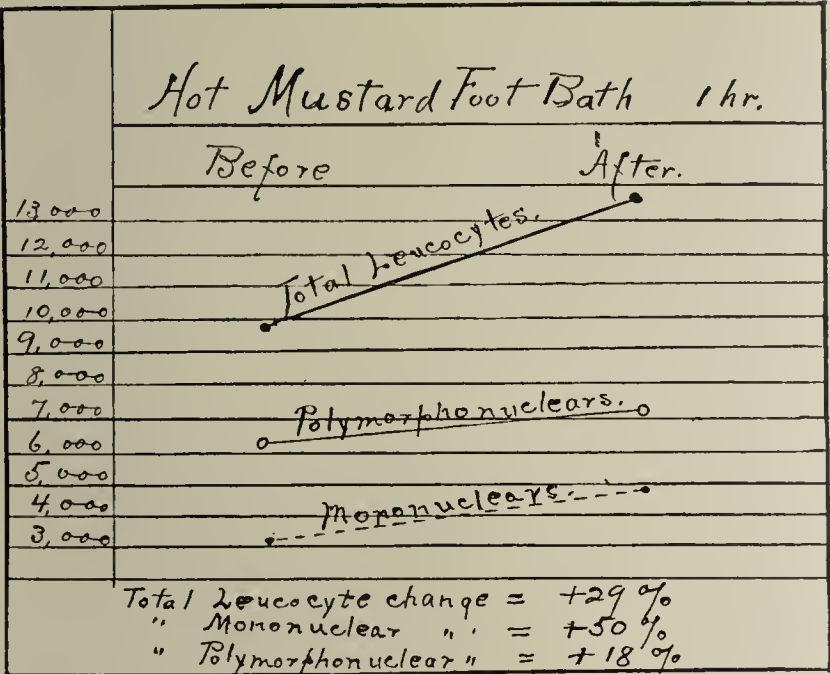 Hot Mustard Foot Bath 1 hr.
Before After.
13,000
12,000
11,000
10,000
9,000
8,000
7,000
6,000
5,000
4,000
3,000
Total Leucocytes.
Polymorphonuclears.
Mononuclears.
Total Leucocyte change = +29 %
" Mononuclear " = +50 %
" Polymorphonuclear " = +18 %